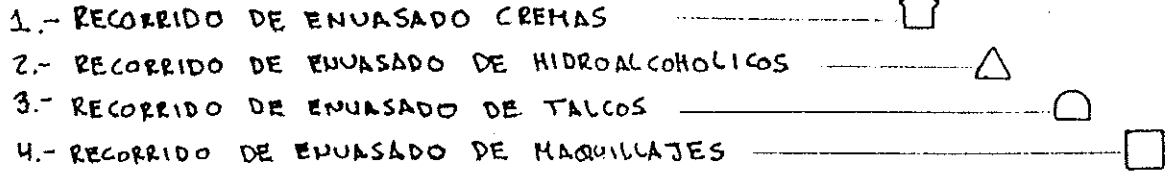 1.- RECORRIDO DE ENVASADO CREMAS
2.- RECORRIDO DE ENVASADO DE HIDROALCOHOLICOS
3.- RECORRIDO DE ENVASADO DE TALCOS
4.- RECORRIDO DE ENVASADO DE MAQUILLAJES